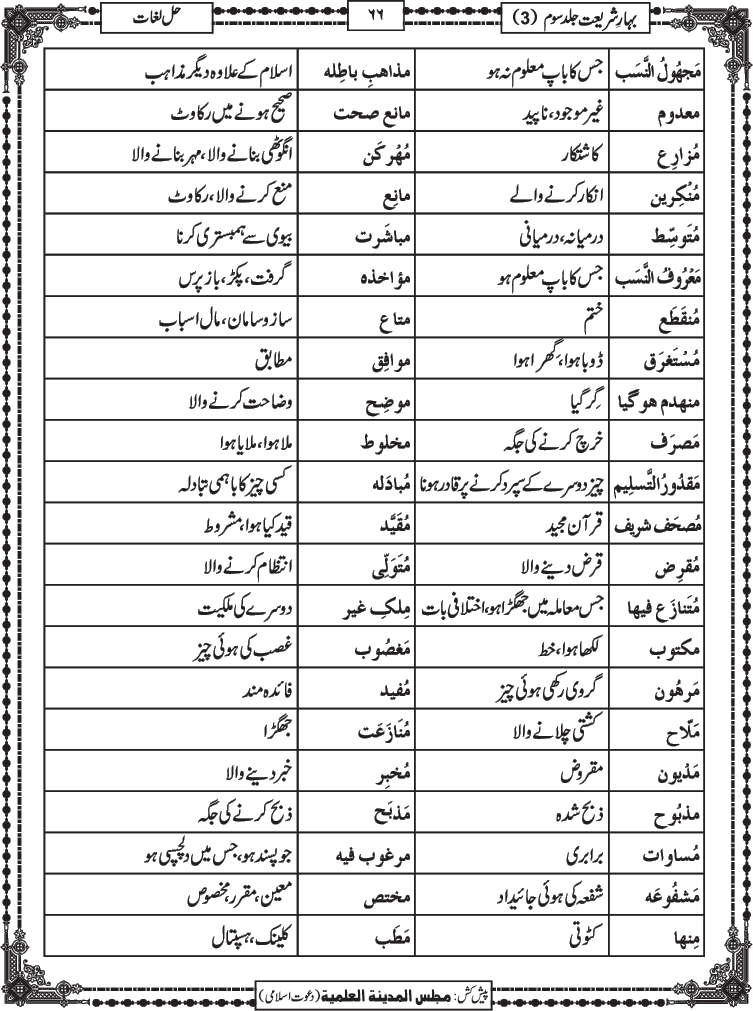 بہارِ شریعت جلد سوم (3) ۶۶ حل لغات
مَجہُولُ النَّسَب جس کا باپ معلوم نہ ہو مذاہبِ باطِلہ اسلام کے علاوہ دیگر مذاہب
معدوم غیر موجود، ناپید مانع صحت صحیح ہونے میں رکاوٹ
مُزارِع کاشتکار مُہْر کَن انگوٹھی بنانے والا، مہر بنانے والا
مُنْکِرین انکار کرنے والے مانِع منع کرنے والا، رکاوٹ
مُتَوسِّط درمیانہ، درمیانی مباشَرت بیوی سے ہمبستری کرنا
مَعْرُوفُ النَّسَب جس کا باپ معلوم ہو مؤاخذہ گرفت، پکڑ، باز پرس
مُنقَطَع ختم متاع ساز و سامان، مال اسباب
مُسْتَغرَق ڈوبا ہوا، گھرا ہوا موافِق مطابق
منہدم ہوگیا گِر گیا موضِح وضاحت کرنے والا
مَصرَف خرچ کرنے کی جگہ مخلوط ملا ہوا، ملایا ہوا
مَقدُورُ التَّسلِیم چیز دوسرے کے سپرد کرنے پر قادر ہونا مُبادَلہ کسی چیز کا باہمی تبادلہ
مُصحَف شریف قرآن مجید مُقَیَّد قید کیا ہوا، مشروط
مُقرِض قرض دینے والا مُتَوَلِّی انتظام کرنے والا
مُتَنازَع فیہا جس معاملہ میں جھگڑا ہو، اختلافی بات مِلکِ غیر دوسرے کی ملکیت
مکتوب لکھا ہوا، خط مَغصُوب غصب کی ہوئی چیز
مَرہُون گروی رکھی ہوئی چیز مُفید فائدہ مند
مَلّاح کشتی چلانے والا مُنَازَعَت جھگڑا
مَدْیون مقروض مُخبِر خبر دینے والا
مذبُوح ذبح شدہ مَذبَح ذبح کرنے کی جگہ
مُساوات برابری مرغوب فیہ جو پسند ہو، جس میں دلچسپی ہو
مَشفُوعَہ شفعہ کی ہوئی جائیداد مختص معین، مقرر، مخصوص
مِنہا کٹوتی مَطَب کلینک، ہسپتال
پیش کش: مجلس المدینۃ العلمیۃ (دعوت اسلامی)